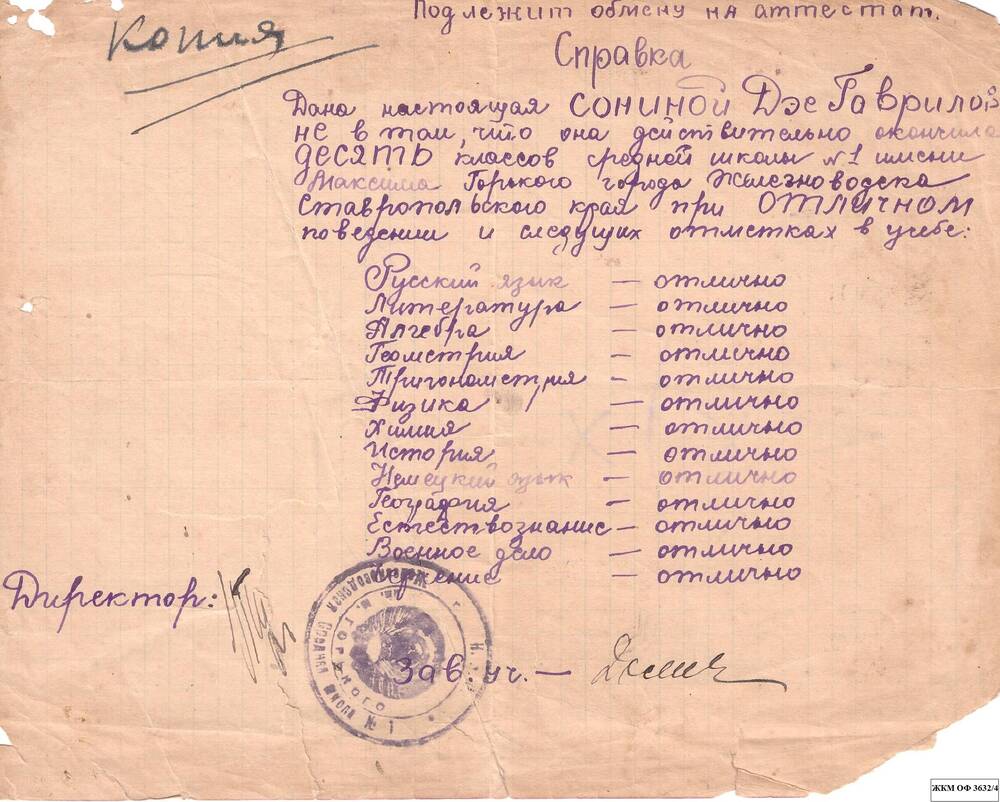 Подлежит обмену на аттестат.
Копия
Справка
Дана настоящая СОНИНОЙ Дэе Гаврилов
не в том, что она действительно окончила
ДЕСЯТЬ классов средней школы №1 имени
Максима Горького города Железноводска
Ставропольского края при ОТЛИЧНОМ
поведении и следущих отметках в учебе:
Русский язык — отлично
Литература — отлично
Алгебра — отлично
Геометрия — отлично
Тригонометрия - отлично
Физика — отлично
Химия — отлично
История — отлично
Немецкий язык — отлично
География — отлично
Естествознание — отлично
Военное дело — отлично
Черчение — отлично
Директор:
Зав. уч. —
Железноводская Средняя школа № 1
им. М. ГОРЬКОГО
ЖКМ ОФ 3632/4